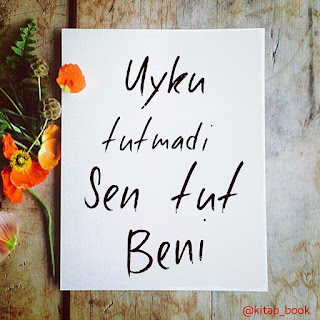 Uyku
tutmadi
Sen tut
Beni
@kitap_book